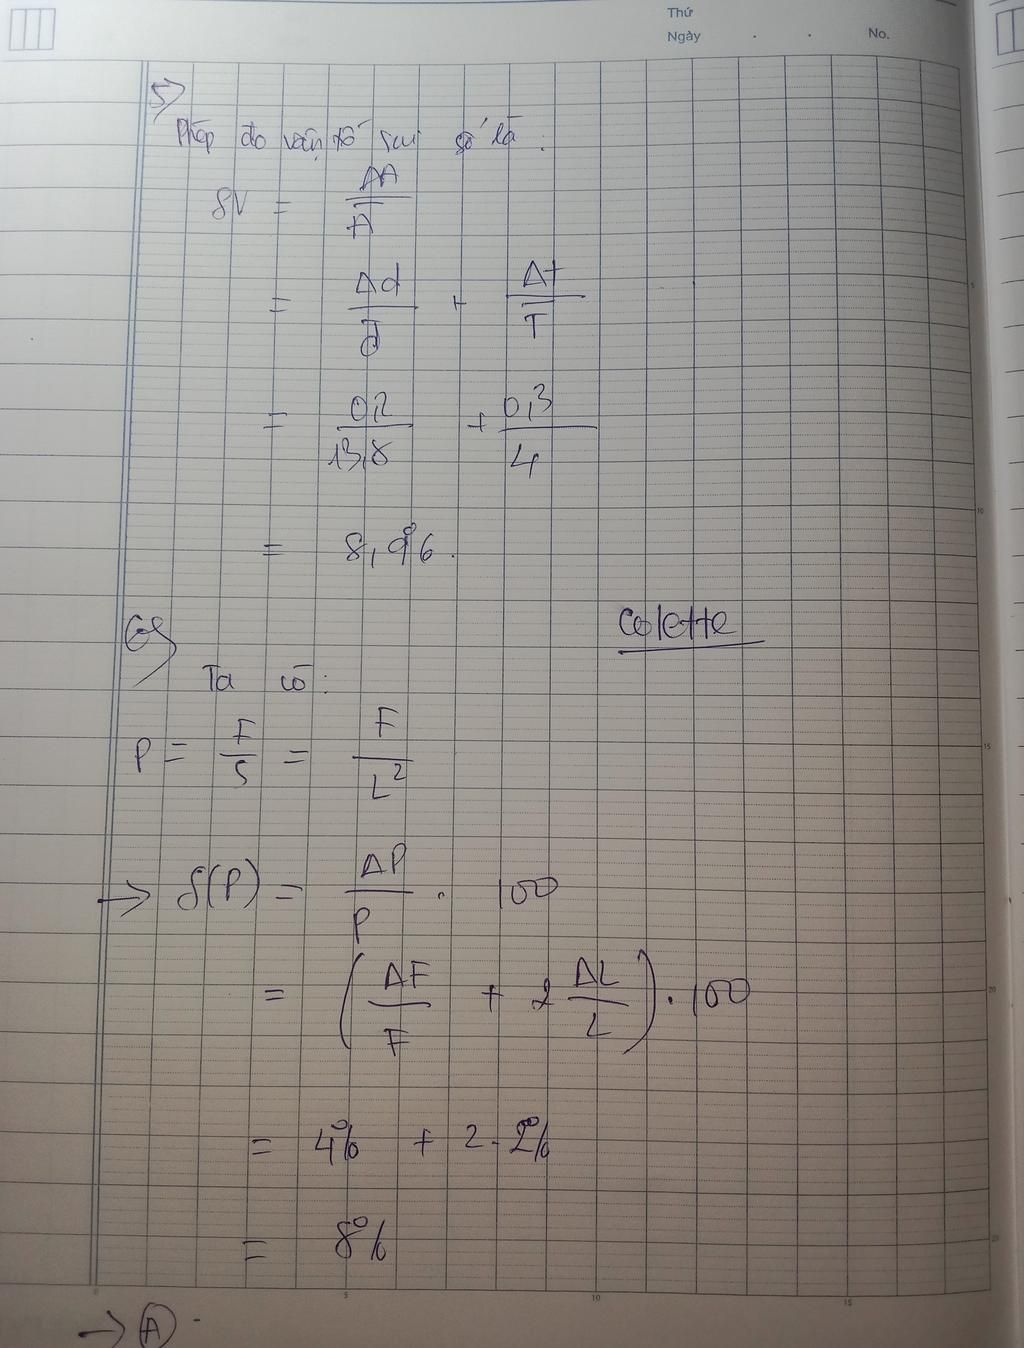 Thứ
Ngày . . No.
5)
Phép đo vận tố sai số là :
δV = ΔA / A̅
= Δd / d̅ + Δt / T̅
= 0,2 / 13,8 + 0,3 / 4
= 8,9%.
6)
Colette
Ta có:
P = F / S = F / L²
→ δ(P) = ΔP / P . 100
= (ΔF / F + 2 ΔL / L) . 100
= 4% + 2 . 2%
= 8%
→ A
5 10 15
5
10
15
20